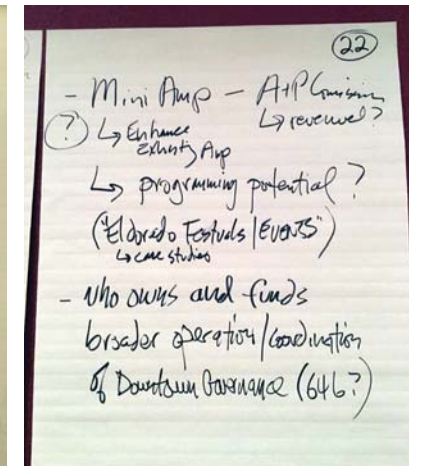 22
- Mini Amp - A+P Commission
? ↳ Enhance ↳ revenue?
Existing Amp
↳ programming potential?
("Eldorado Festivals/EVENTS")
↳ case studies
- Who owns and funds
broader operation/coordination
of Downtown Governance (646?)